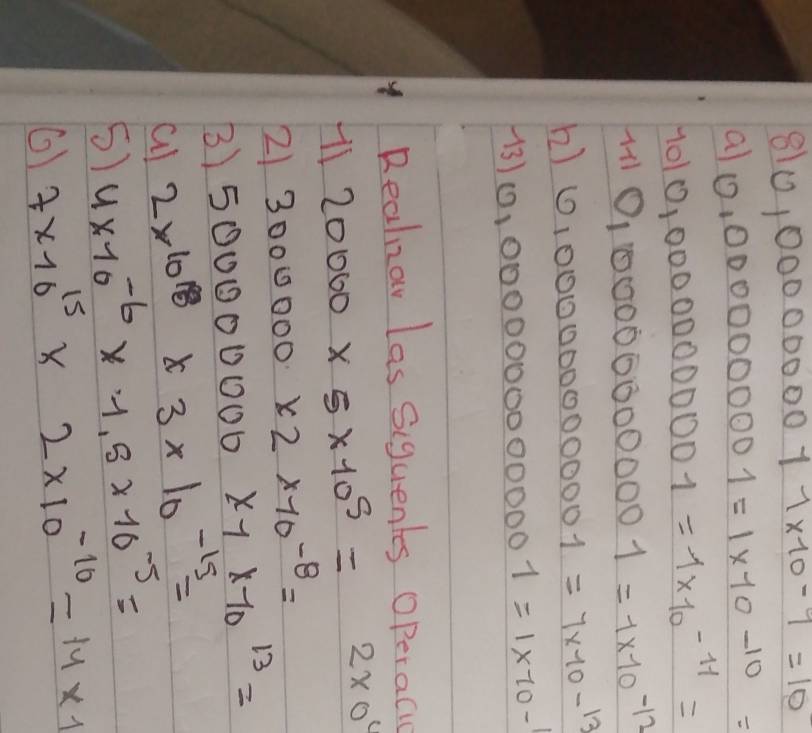 8) 0,000000001 1x10-9 = 10
9) 0,0000000001 = 1x10-10 =
10) 0,00000000001 = 1x10-11 =
11) 0,000000000001 = 1x10-12
12) 0,0000000000001 = 1x10-13
13) 0,00000000000001 = 1x10-1
Realizar las siguientes operacio
1) 20000 x 5 x 10⁵ = 2x0⁴
2) 3000000 x 2 x 10⁻⁸ =
3) 500000000 x 1 x 10¹³ =
4) 2x10¹⁸ x 3 x 10⁻¹⁵ =
5) 4x10⁻⁶ x 1,5 x 10⁻⁵ =
6) 7x10¹⁵ x 2x10⁻¹⁰ = 14x1